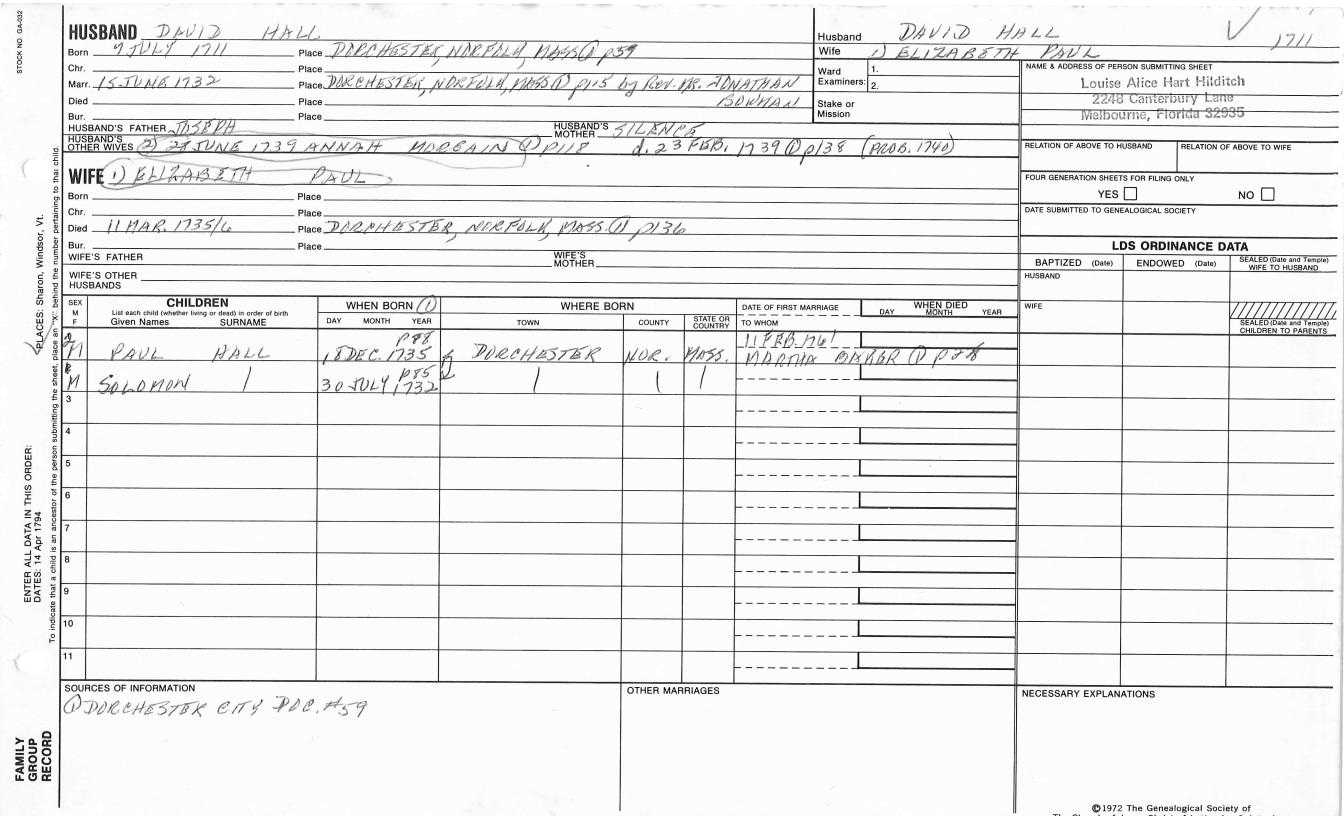 STOCK NO. GA-032
HUSBAND DAVID HALL
Born 9 JULY 1711 Place DORCHESTER, NORFOLK, MASS ① p59
Chr. Place
Marr. 15 JUNE 1732 Place DORCHESTER, NORFOLK, MASS ① p115 by REV. MR. JONATHAN
Died Place BOWMAN
Bur. Place
HUSBAND'S FATHER JOSEPH HUSBAND'S MOTHER SILENCE
HUSBAND'S OTHER WIVES 2) 28 JUNE 1739 ANNAH MORGAIN ① p118 d. 23 FEB. 1739 ① p138 (PROB. 1740)
WIFE 1) ELIZABETH PAUL
Born Place
Chr. Place
Died 11 MAR. 1735/6 Place DORCHESTER, NORFOLK, MASS. ① p136
Bur. Place
WIFE'S FATHER WIFE'S MOTHER
WIFE'S OTHER HUSBANDS
Husband DAVID HALL 1711
Wife 1) ELIZABETH PAUL
Ward Examiners: 1.
2.
Stake or Mission
NAME & ADDRESS OF PERSON SUBMITTING SHEET
Louise Alice Hart Hilditch
2248 Canterbury Lane
Melbourne, Florida 32935
RELATION OF ABOVE TO HUSBAND RELATION OF ABOVE TO WIFE
FOUR GENERATION SHEETS FOR FILING ONLY
YES NO
DATE SUBMITTED TO GENEALOGICAL SOCIETY
LDS ORDINANCE DATA
BAPTIZED (Date) ENDOWED (Date) SEALED (Date and Temple) WIFE TO HUSBAND
HUSBAND
WIFE
SEALED (Date and Temple) CHILDREN TO PARENTS
SEX M F
CHILDREN
List each child (whether living or dead) in order of birth
Given Names SURNAME
WHEN BORN ①
DAY MONTH YEAR
WHERE BORN
TOWN COUNTY STATE OR COUNTRY
DATE OF FIRST MARRIAGE
TO WHOM
WHEN DIED
DAY MONTH YEAR
p88 11 FEB. 1761
M PAUL HALL 18 DEC. 1735 DORCHESTER NOR. MASS. MARTHA BAKER ①
p85
M SOLOMON 30 JULY 1732
3
4
5
6
7
8
9
10
11
SOURCES OF INFORMATION
① DORCHESTER CITY DOC. #59
OTHER MARRIAGES
NECESSARY EXPLANATIONS
ENTER ALL DATA IN THIS ORDER:
DATES: 14 Apr 1794
PLACES: Sharon, Windsor, Vt.
To indicate that a child is an ancestor of the person submitting the sheet, place an "X" behind the number pertaining to that child.
FAMILY
GROUP
RECORD
©1972 The Genealogical Society of